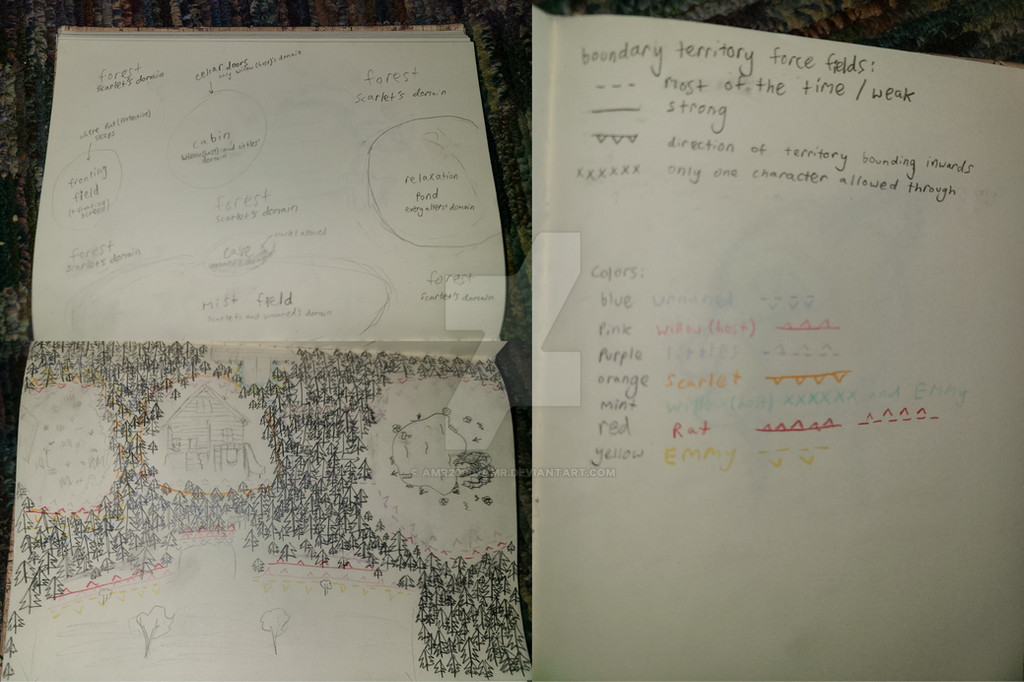 forest
scarlet's domain
cellar doors
only willow (host)'s domain
forest
scarlet's domain
where Rat
sleeps
cabin
domain
fronting
field
relaxation
pond
every alters' domain
forest
scarlet's domain
forest
scarlet's domain
cave
forest
scarlet's domain
mist field
scarlet's and unnamed's domain
boundary territory force fields:
--- most of the time / weak
strong
direction of territory bounding inwards
xxxxxx only one character allowed through
Colors:
blue unnamed
Pink willow (host)
Purple littles
orange Scarlet
mint willow (host) xxxxxx and Emmy
red Rat
yellow Emmy
DEVIANTART.COM